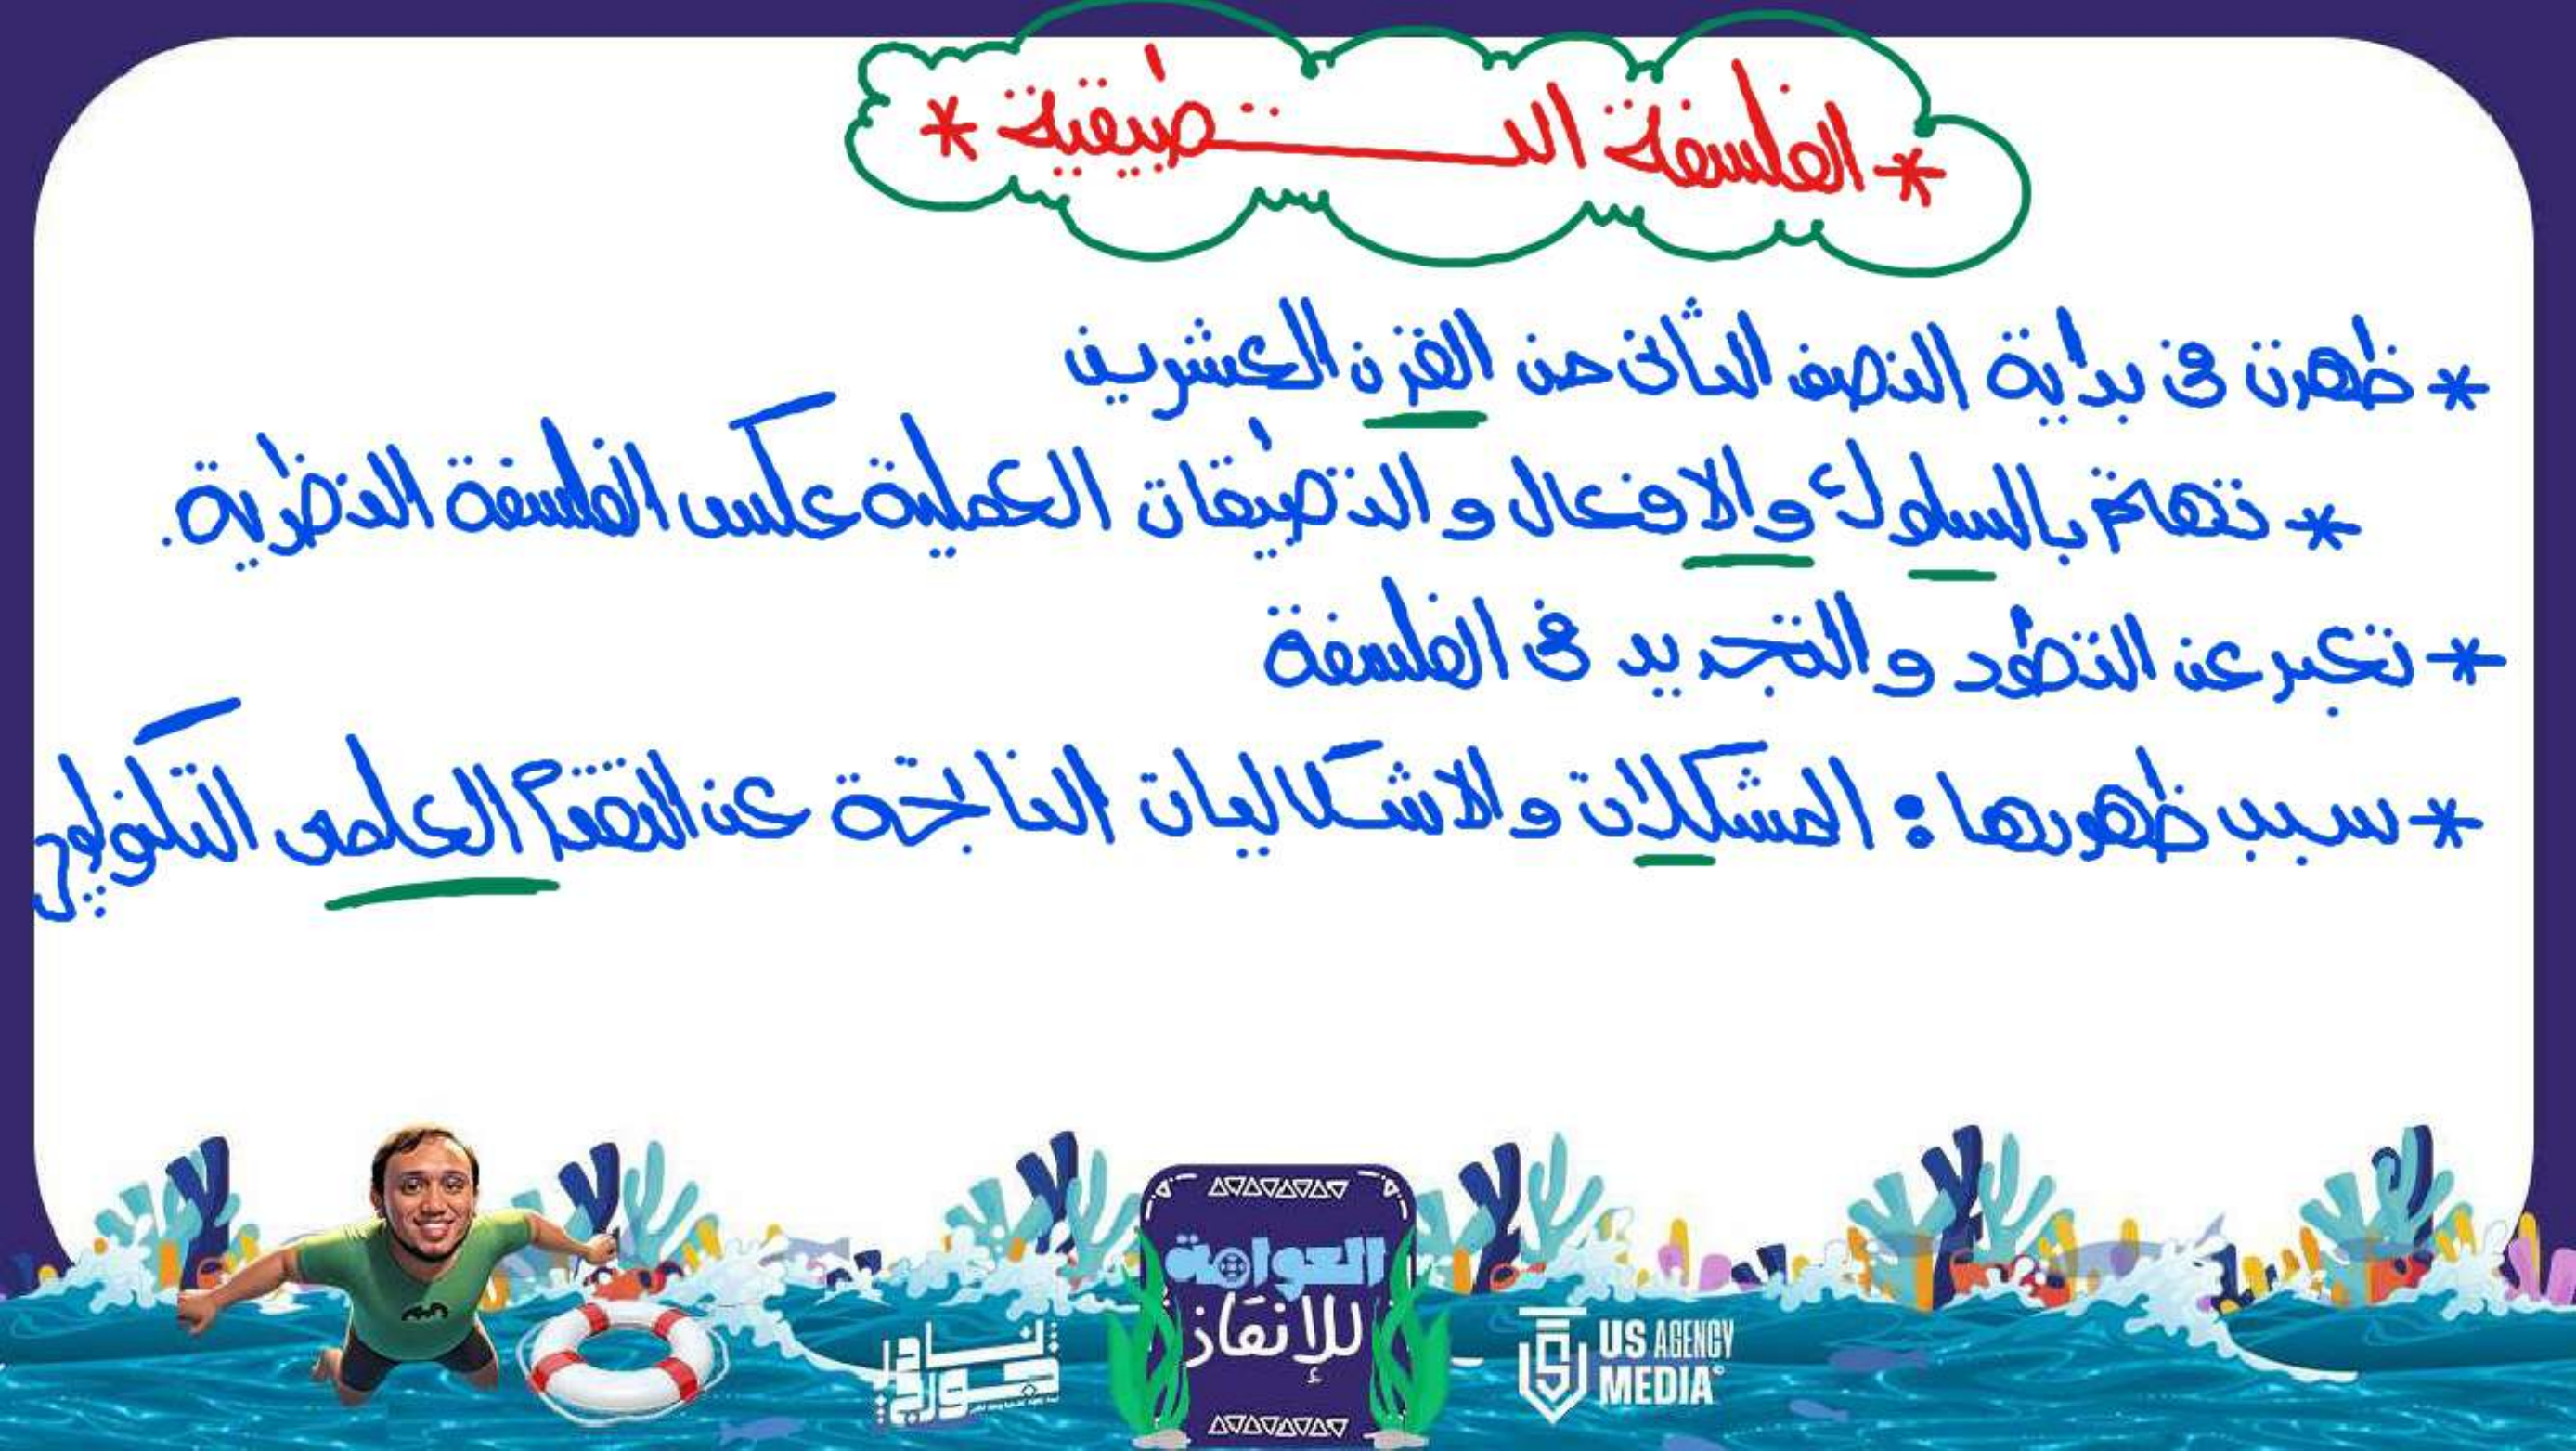 * الفلسفة التطبيقية *
* ظهرت فى بداية النصف الثانى من القرن العشرين
* تهتم بالسلوك والافعال و التطبيقات العملية عكس الفلسفة النظرية.
* تعبر عن التطور و التجديد فى الفلسفة
* سبب ظهورها : المشكلات و الاشكاليات الناتجة عن التقدم العلمى التكنولوجى
العوامة
للإنقاذ
US AGENCY
MEDIA